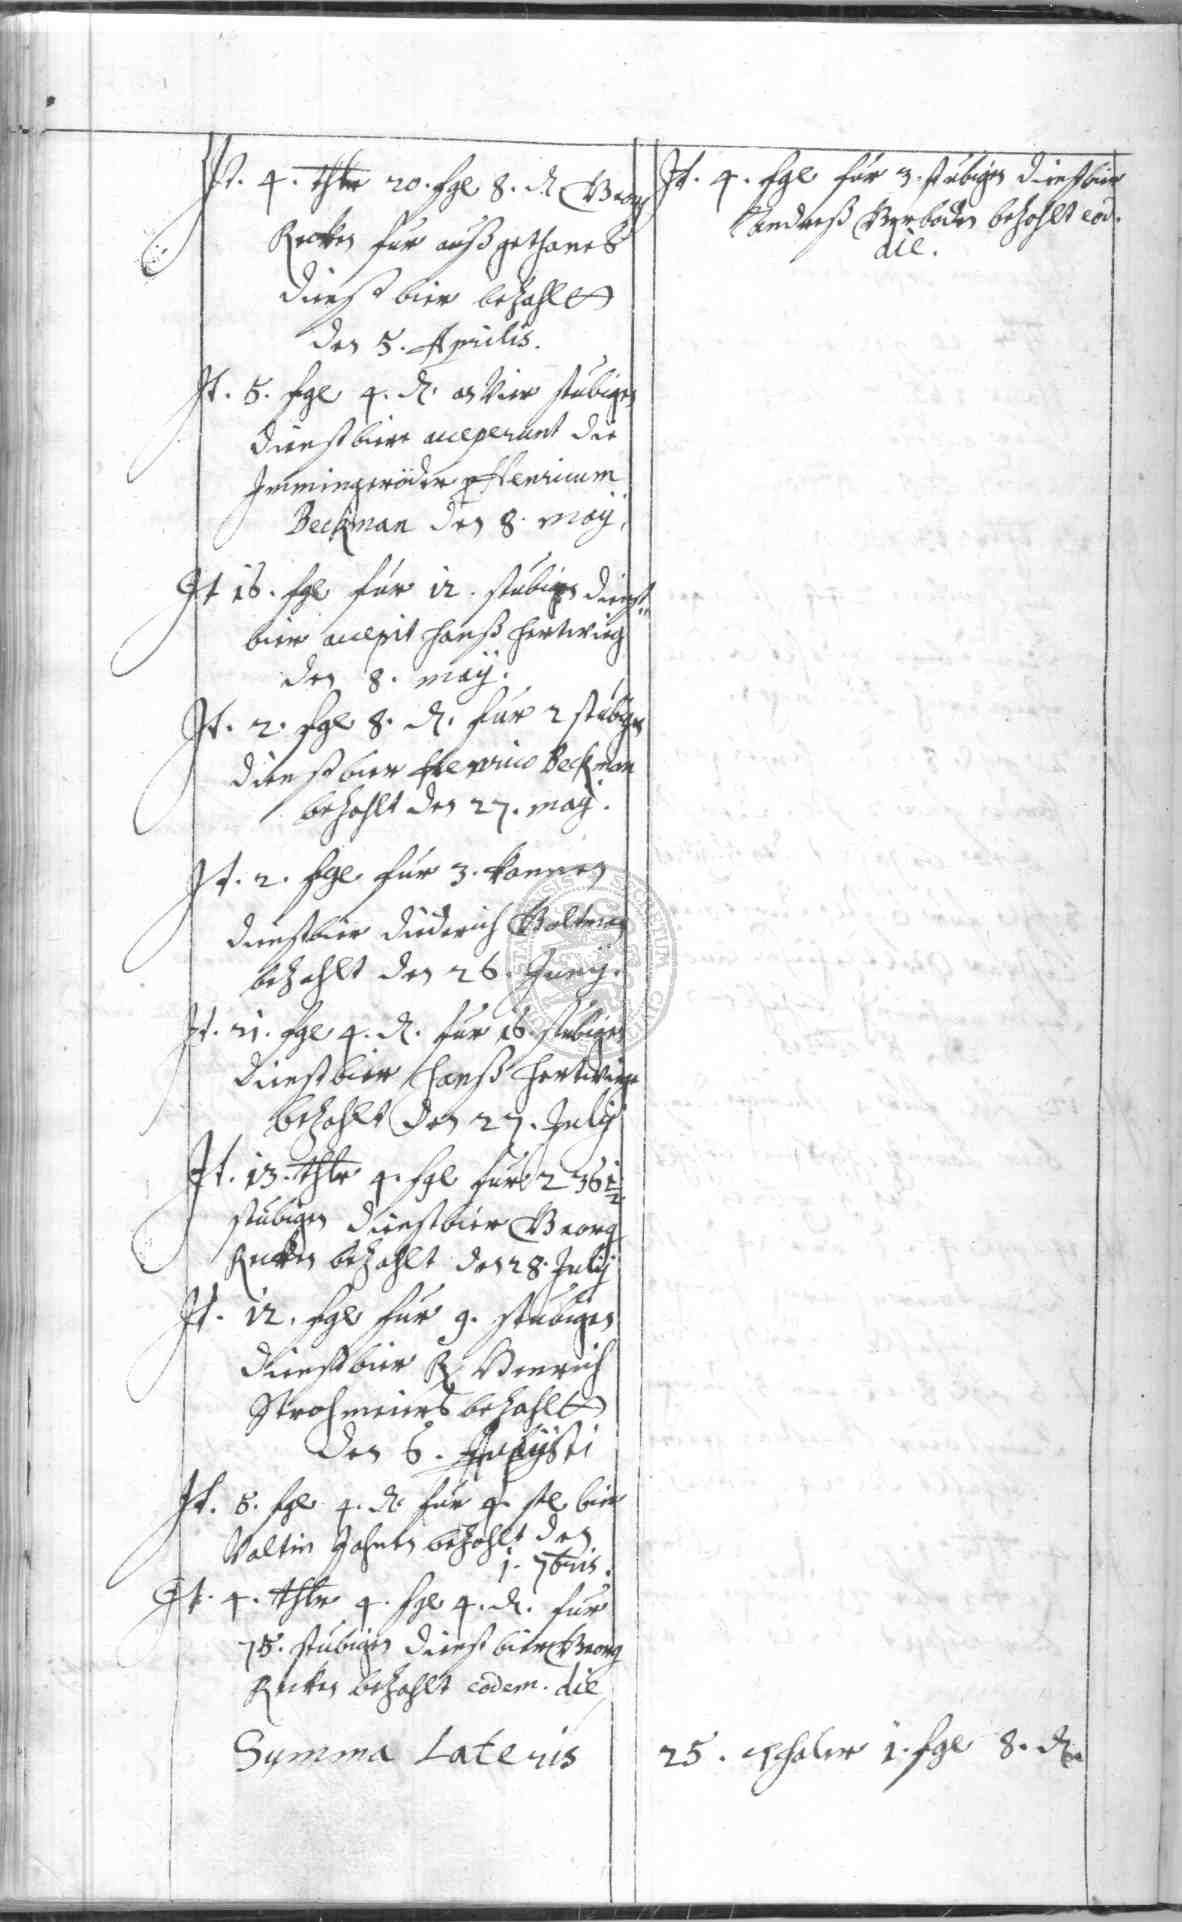 Jt. 4. thlr 20. fgl 8. d Georg
Recken für außgethanes
dienst bier bezahlt
den 5. Aprilis.
Jt. 5. fgl 4. d. vier stübigen
dienstbier acceperunt die
Jmmingeröder p Henricum
Beckman den 8. maÿ.
Jt 16. fgl für 12. stübigen dienst=
bier accepit Hanß Hertwig
den 8. maÿ.
Jt. 2. fgl 8. d. für 2 stübigen
dienstbier Henrico Beckman
bezahlt den 27. maÿ.
Jt. 2. fgl für 3. kannen
dienstbier Diederich Boltman
bezahlt den 26. Junÿ.
Jt. 21. fgl 4. d. für 16. stübigen
dienstbier Hanß Hertwig
bezahlt den 27. Julÿ
Jt. 13. thlr 4. fgl für 236 1/2
stübigen dienstbier Georg
Recken bezahlt den 28. Julÿ
Jt. 12. fgl für 9. stübigen
dienstbier Henrich
Strohmeiers bezahlt
den 6. Augusti
Jt. 5. fgl 4. d. für 4. st. bier
Valtin Jahnen bezahlt den
1. 7bris.
Jt. 4. thlr 4. fgl 4. d. für
75. stübigen dienst bier Georg
Recken bezahlt eodem. die
Jt. 4. fgl für 3. stübigen dienstbier
Andreß bezahlt eod.
die.
Summa Lateris 25. thaler 1. fgl 8. d.